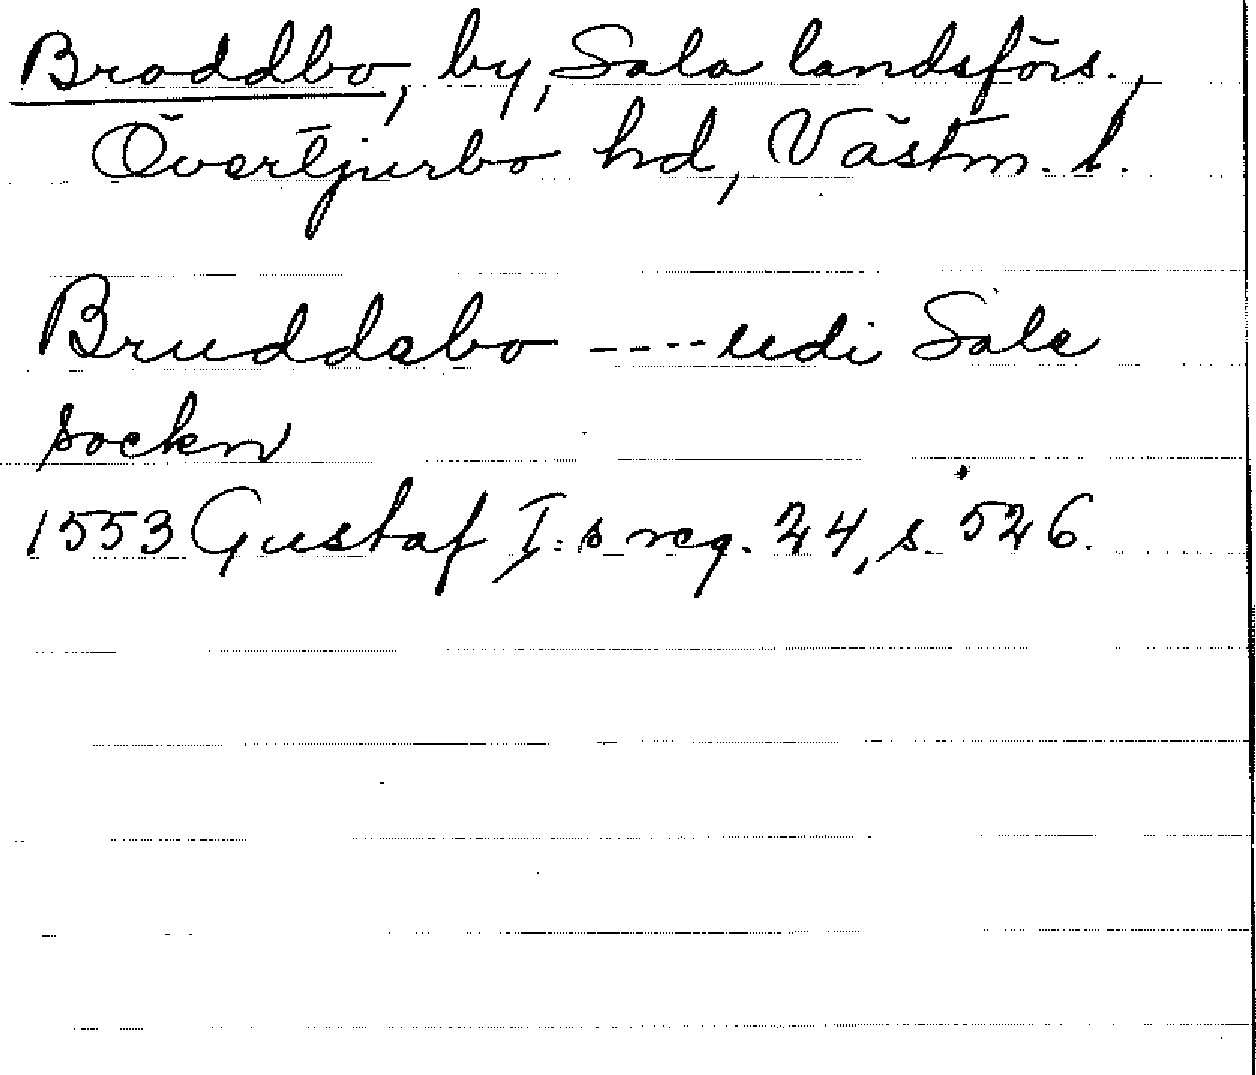 Broddbo, by, Sala landsförs.,
Övertjurbo hd, Västm. l.
Bruddabo ---- udi Sala
sockn
1553 Gustaf I:s reg. 24, s. 526.